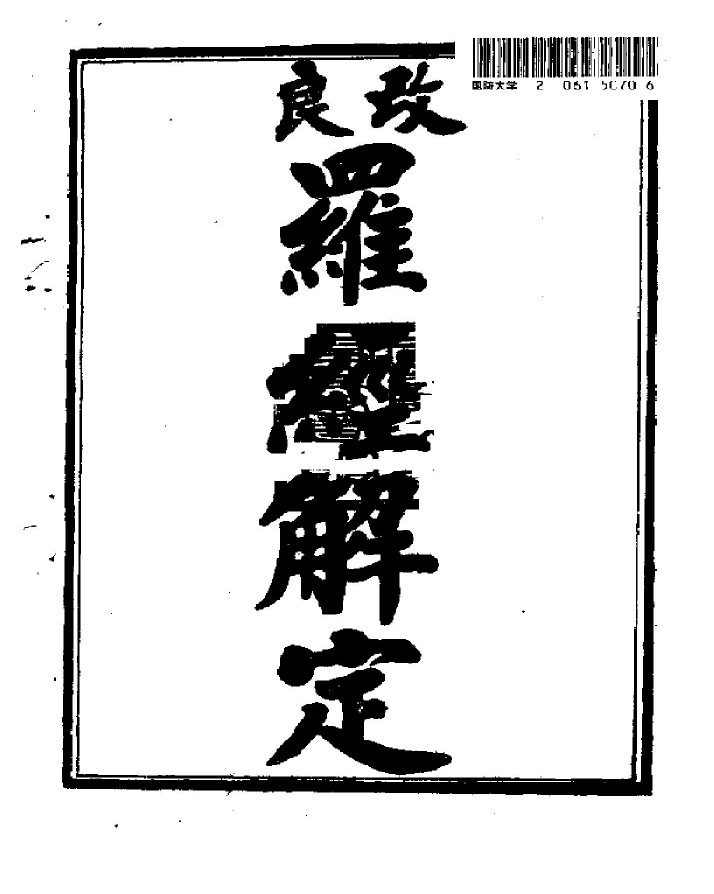 改良
羅經解定
国防大学 2 061 5070 6